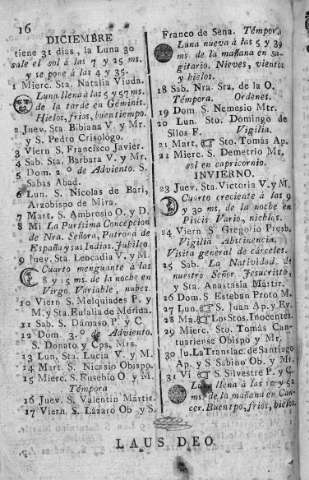 16
DICIEMBRE
tiene 31 dias, la Luna 30
sale el sol á las 7 y 25 ms.
y se pone á las 4 y 35.
1 Mierc. Sta. Natalia Viuda.
Luna llena á las 5 y 57 ms.
de la tarde en Geminis.
Hielos, frios, buen tiempo.
2 Juev. Sta. Bibiana V. y Mr.
y S. Pedro Crisólogo.
3 Viern S. Francisco Javier.
4 Sab. Sta. Barbara V. y Mr.
5 Dom. 2º de Adviento. S.
Sabas Abad.
6 Lun. S. Nicolas de Bari,
Arzobispo de Mira.
7 Mart. S. Ambrosio O. y D.
8 Mi. La Purísima Concepcion
de Nra. Señora, Patrona de
España y sus Indias. Jubileo.
9 Juev. Sta. Leocadia V. y M.
Cuarto menguante á las
8 y 15 ms. de la noche en
Virgo. Variable y nubes.
10 Viern S. Melquiades P. y
M. y Sta Eulalia de Mérida.
11 Sab. S. Dámaso P. y C.
12 Dom. 3.º de Adviento.
S. Donato y Cps. Mrs.
13 Lun. Sta. Lucia V. y M.
14 Mart. S. Nicasio Obispo.
15 Mierc. S. Eusebio O. y M.
Témpora
16 Juev. S. Valentin Mártir.
17 Viern S. Lázaro Ob. y S.
Franco de Sena. Témpora
Luna nueva á las 5 y 39
ms. de la mañana en sa-
gitario. Nieves, vientos
y hielos.
18 Sab. Nra. Sra. de la O.
Témpora. Ordenes.
19 Dom S. Nemesio Mtr.
20 Lun. Sto. Domingo de
Silos F. Vigilia.
21 Mart. Sto. Tomás Ap.
22 Mierc. S. Demetrio Mr.
sol en capricornio.
INVIERNO.
23 Juev. Sta. Victoria V. y M.
Cuarto creciente á las 9
y 30 ms. de la noche en
Piscis Vario, nieblas.
24 Viern S. Gregorio Presb.
Vigilia Abstinencia.
Visita general de cárceles.
25 Sab. La Natividad de
nuestro Señor Jesucristo,
y Sta. Anastasia Mártir.
26 Dom. S Esteban Proto M.
27 Lun. S. Juan Ap. y Ev.
28 Ma. Los Stos. Inocentes.
29 Mierc. Sto. Tomás Can-
tuariense Obispo y Mr.
30 Ju. La Translac. de Santiago
Ap. y S Sabino Ob. y Mr.
31 Vi S. Silvestre P. y C.
Luna llena á las 10 y 52
ms. de la mañana en Can-
cer. Buen tpo, frios, hielos.
LAUS DEO.